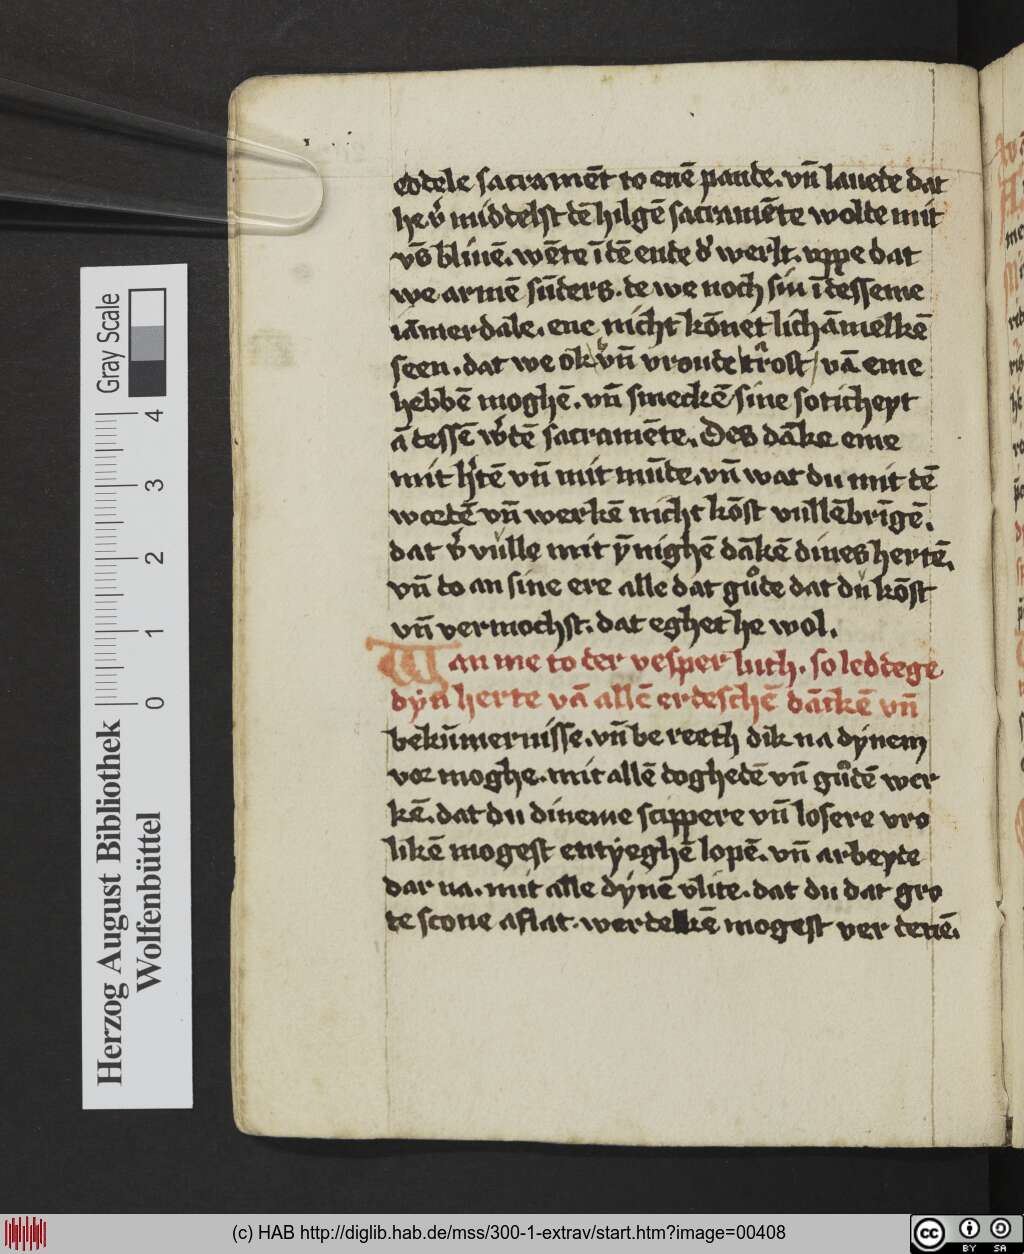 eddele sacramēt to enē pande. vn̄ lauede dat
he v᷑ middelst dē hilgē sacramēte wolde mit
vs bliuē. wēte ī dē ende d᷑ werlt. vppe dat
we armē sūders. de we noch sin ī desseme
iāmerdale. ene nicht kōnet lichāmelkē
seen. dat we ok vn̄ vroude trost vā eme
hebbē moghē. vn̄ smeckē sine soticheyt
ā dessē w᷑dē sacramēte. Des dāke eme
mit h᷑tē vn̄ mit mūde. vn̄ wat du mit dē
wordē vn̄ werkē nicht kōst vullēbrīgē.
dat v᷑vulle mit ȳnighē dākē dines hertē.
vn̄ do an sine ere alle dat guͦde dat du kōst
vn̄ vermochst. dat eghet he wol.
Wan me to der vesper luth. so leddege
dyn herte vā allē erdeschē dāckē vn̄
bekūmernisse. vn̄ bereeth dik na dynem
vormoghe. mit allē doghedē vn̄ guͦdē wer
kē. dat du dineme scippere vn̄ losere vro
likē mogest entyeghē lopē. vn̄ arbeyde
dar na. mit alle dynē vlite. dat du dat gro
te scone aflat. werdelkē mogest ver denē.
Gray Scale
0 1 2 3 4
Herzog August Bibliothek
Wolfenbüttel
(c) HAB http://diglib.hab.de/mss/300-1-extrav/start.htm?image=00408
cc BY SA